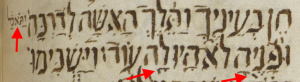 חן בעיניך ותלך האשה לדרכה ותאכל
ופניה לא היו לה עוד וישכימו